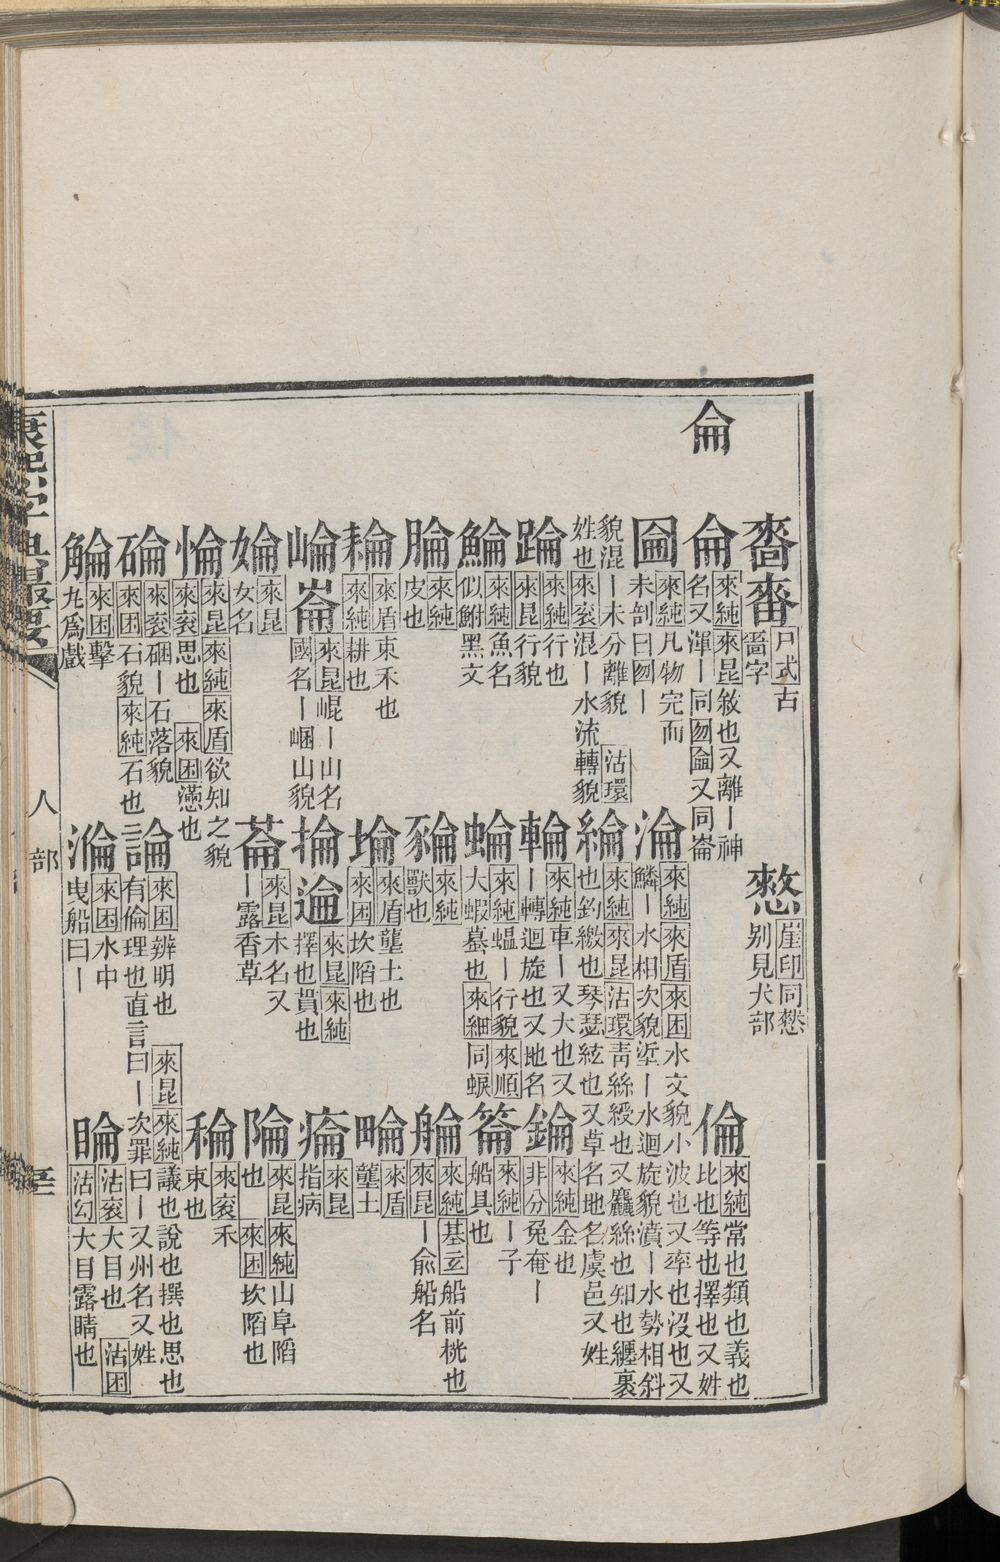 侖
嗇
尸式古
嗇字
憖
崖印同憗
别見犬部
侖
來純來昆敘也又離丨神
名又渾丨同囫圇又同崙
倫
來純常也類也義也
比也等也擇也又姓
圇
來純凡物完而
未剖曰囫丨
淪
來純來盾來困水文貌小波也又率也沒也又
鱗丨水相次貌埿丨水迴旋貌濆丨水勢相斜
貌混丨未分離貌 沽環
姓也來袞混丨水流轉貌
綸
來純來昆沽環青絲綬也又麤絲也知也纒裹
也釣繳也琴瑟絃也又草名地名虞邑又姓
踚
來純行也
來昆行貌
輪
來純車丨又大也又
丨轉迴旋也又地名
錀
來純金也
非分兔奄丨
鯩
來純魚名
似鮒黑文
蜦
來純蝹丨行貌來順
大蝦蟇也來細同蜧
篇
來純丨子
船具也
腀
來純
皮也
豮
來純
獸也
艑
來純基㐬船前桄也
來昆丨俞船名
耣
來盾束禾也
來純耕也
埨
來盾壟土也
來困坎陷也
畘
來盾
壟土
崘崙
來昆崐丨山名
國名丨崓山貌
掄
來昆來純
擇也貫也
瘑
來昆
指病
婨
來昆
女名
菕
來昆木名又
丨露香草
陯
來昆來純山阜陷
也 來困坎陷也
惀
來昆來純來盾欲知之貌
來袞思也 來困懣也
論
來困辨明也 來昆來純議也說也撰也思也
有倫理也直言曰丨次罪曰丨又州名又姓
稐
來袞禾
束也
碖
來袞硱丨石落貌
來困石貌來純石也
睔
沽袞大目也 沽困
沽幻大目露睛也
觮
來困擊
九爲戲
溣
來困水中
曳船曰丨
康熙字典撮要
人部